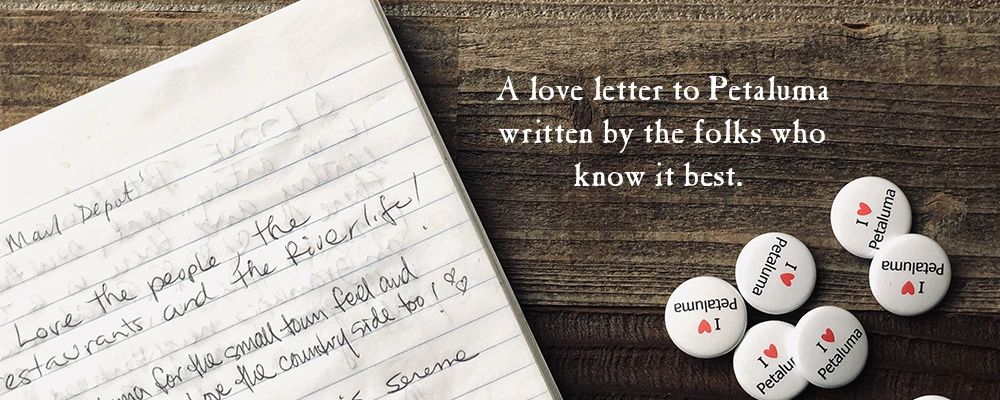 A love letter to Petaluma
written by the folks who
know it best.
Mail Depot!
Love the people, the
estaurants and the River life!
for the small town feel and
ove the country side too!
serene
I ♥
Petaluma
I ♥
Petaluma
I ♥
Petaluma
I ♥
Petaluma
I ♥
Petalu
I ♥
Petaluma